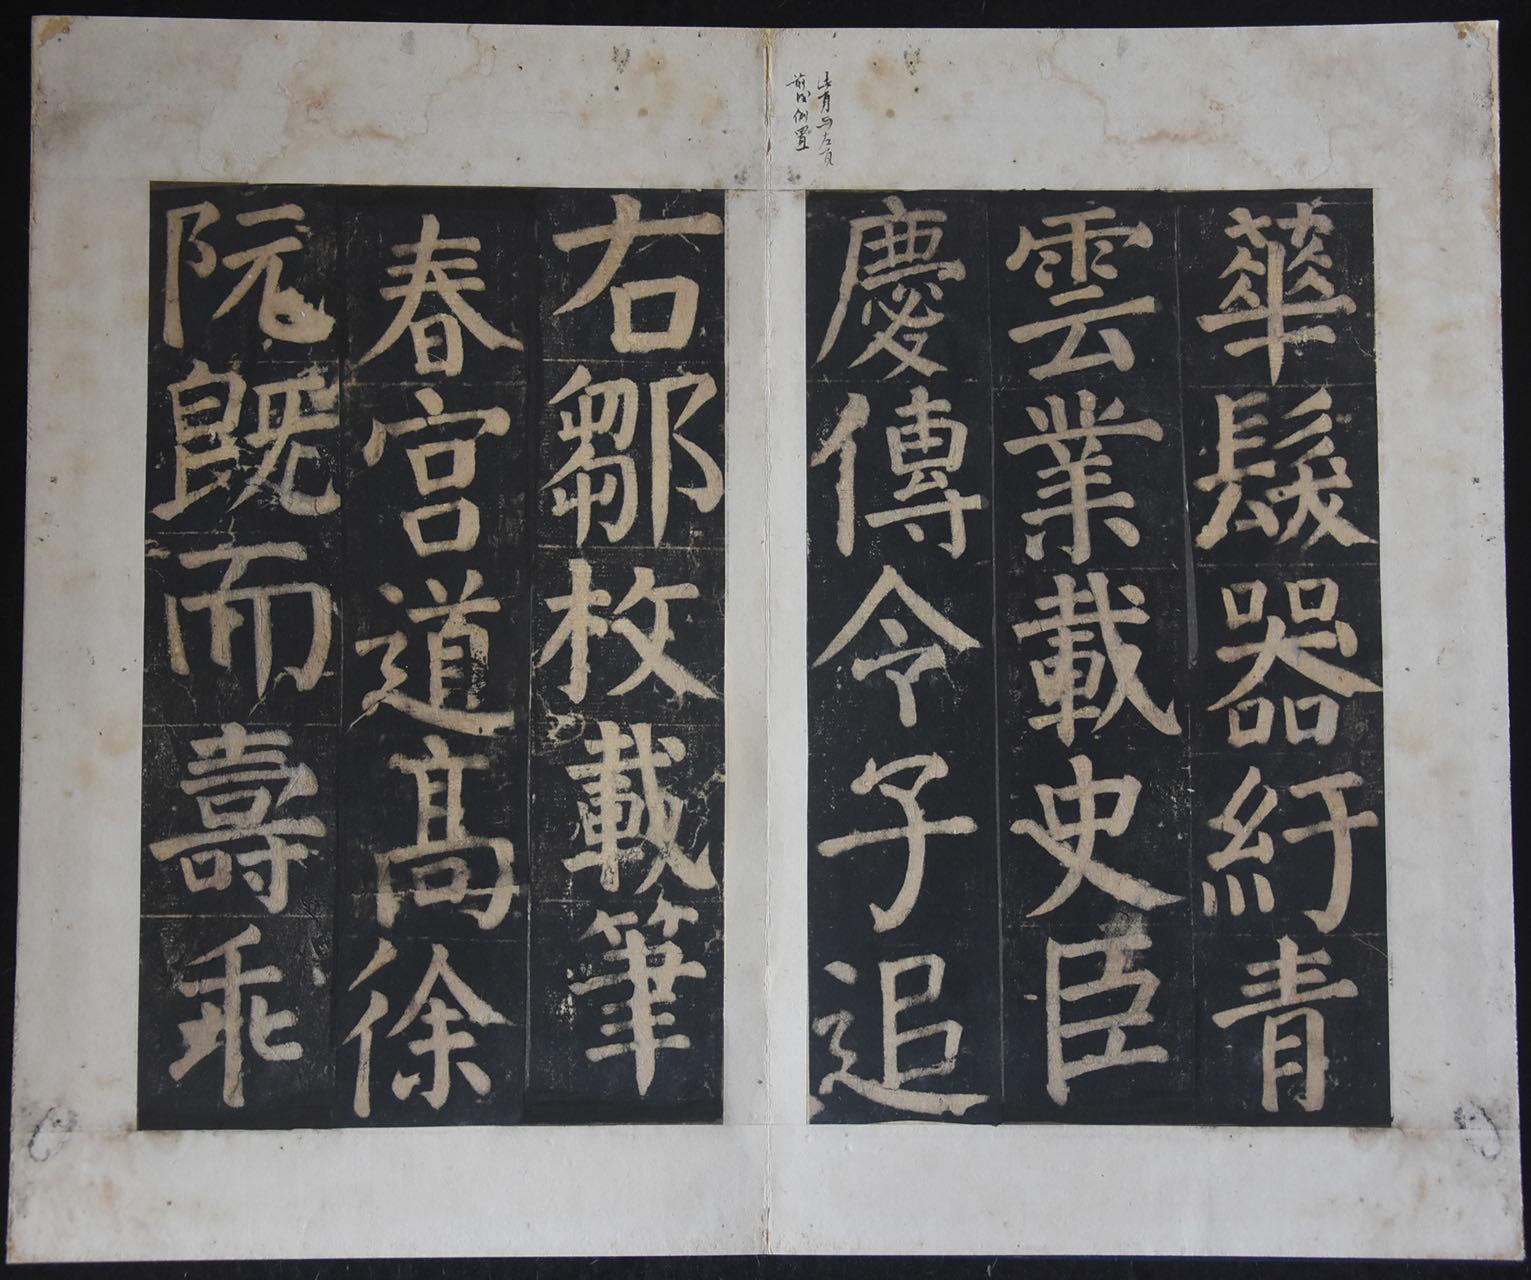 此頁與左頁
前後倒置
華髮器紆青
雲業載史臣
慶傳令子追
右鄒枚載筆
春宮道高徐
阮既而壽乖